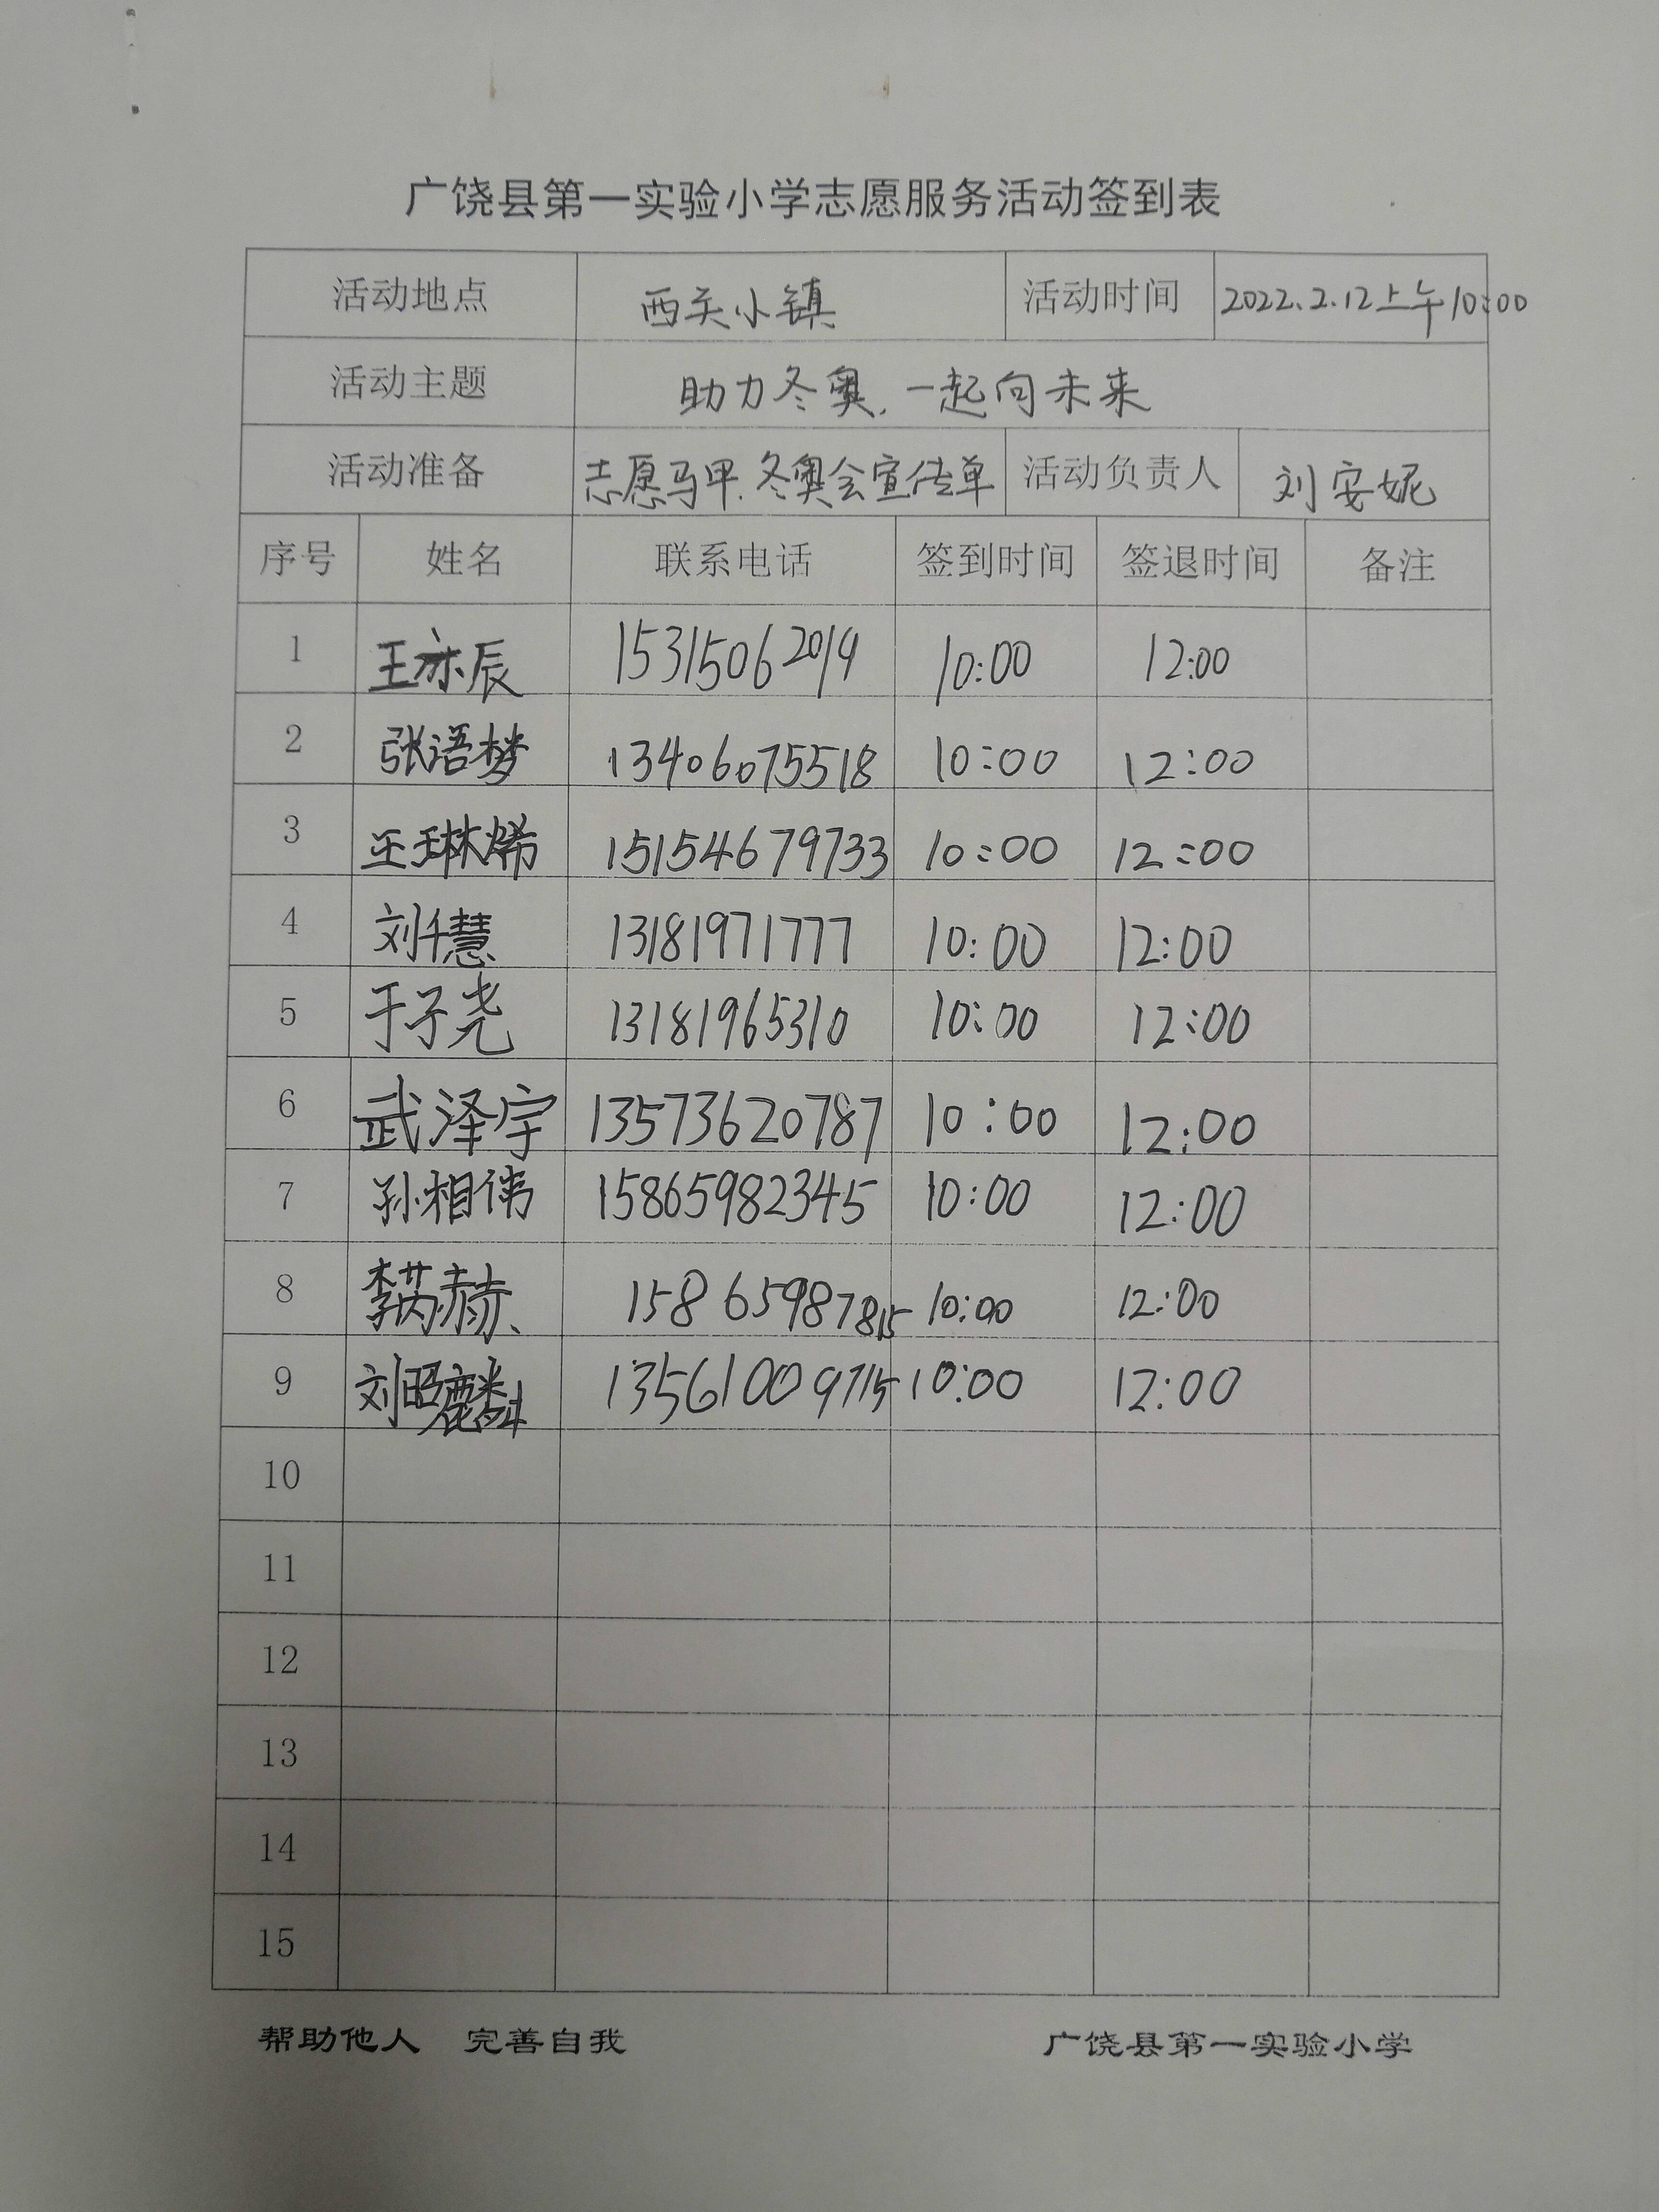 广饶县第一实验小学志愿服务活动签到表
活动地点 西关小镇 活动时间 2022.2.12上午10:00
活动主题 助力冬奥,一起向未来
活动准备 志愿马甲、冬奥会宣传单 活动负责人 刘安妮
序号 姓名 联系电话 签到时间 签退时间 备注
1 王亦辰 15315062019 10:00 12:00
2 张语梦 13406075518 10:00 12:00
3 王琳烯 15154679733 10:00 12:00
4 刘千慧 13181971777 10:00 12:00
5 于子尧 13181965310 10:00 12:00
6 武泽宇 13573620787 10:00 12:00
7 孙相伟 15865982345 10:00 12:00
8 李芮赫 15865987815 10:00 12:00
9 刘昭麟 13561009715 10:00 12:00
10
11
12
13
14
15
帮助他人 完善自我 广饶县第一实验小学